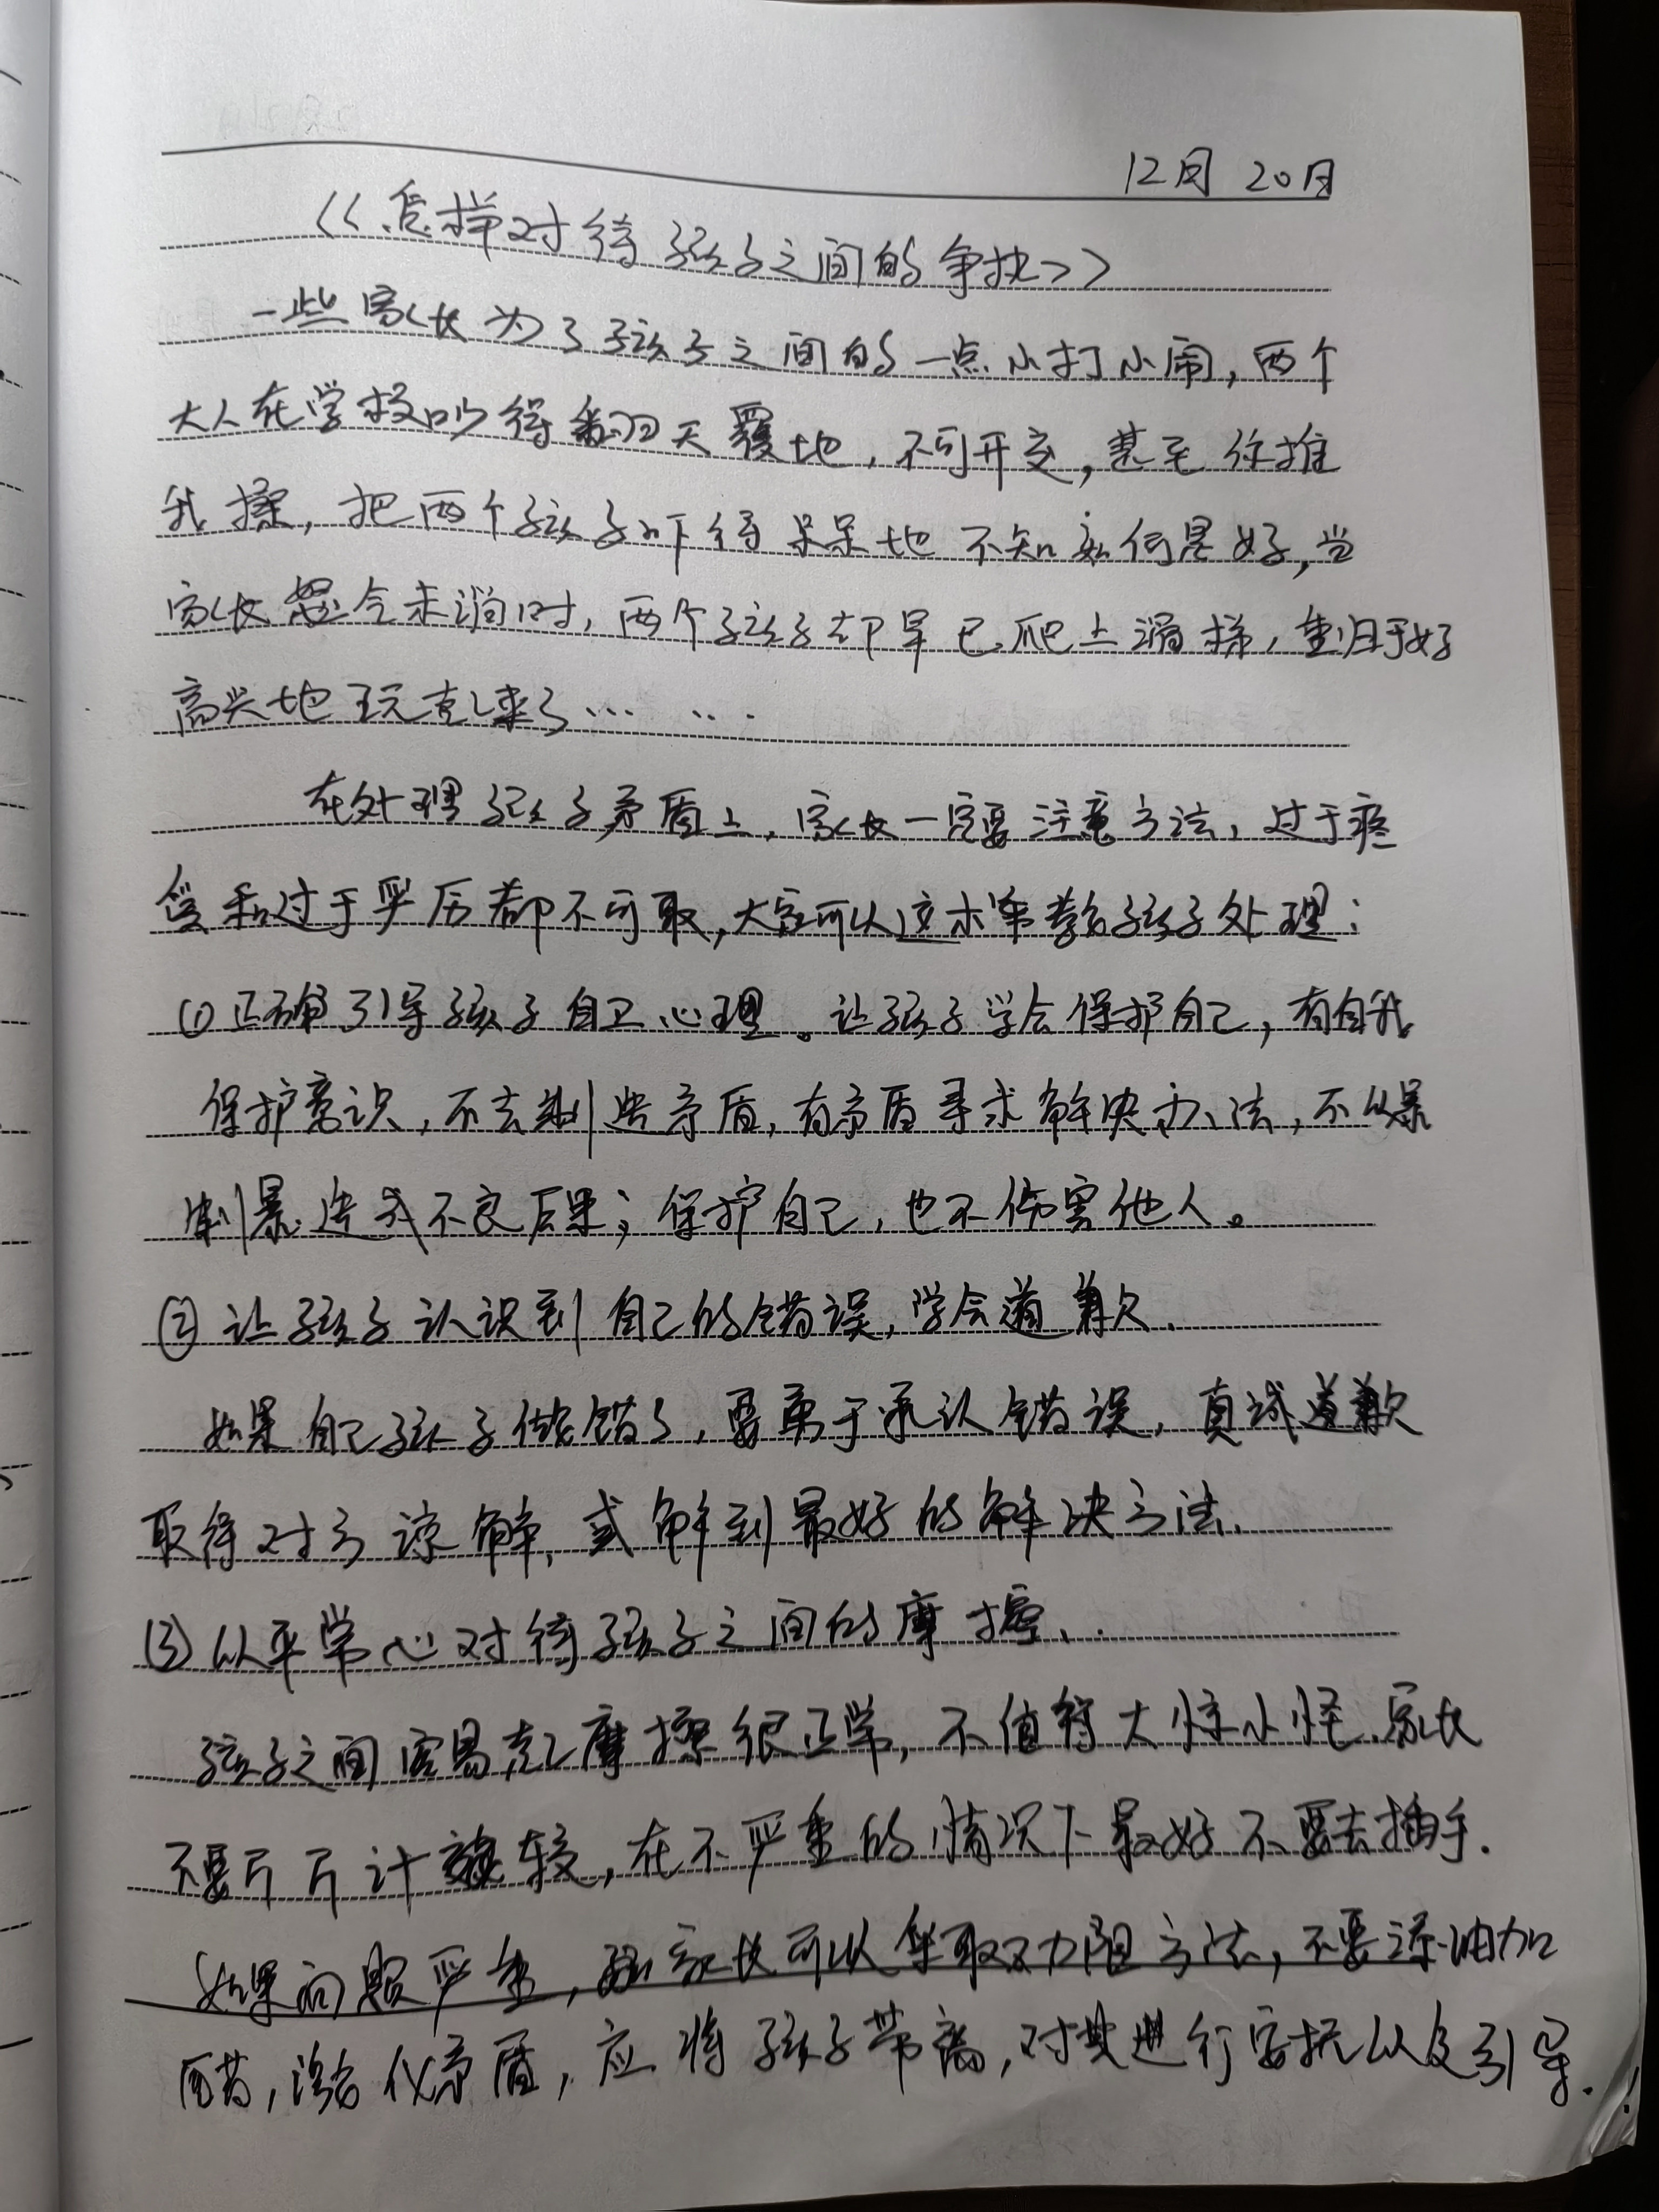 12月20日
《怎样对待孩子之间的争执》
一些家长为了孩子之间的一点小打小闹，两个
大人在学校吵得翻天覆地，不可开交，甚至你推
我搡，把两个孩子吓得呆呆地不知如何是好，当
家长怒气未消时，两个孩子却早已爬上滑梯，重归于好
高兴地玩起来了… …
在处理孩子矛盾上，家长一定要注意方法，过于疼
爱和过于严厉都不可取，大家可以这样来教孩子处理：
(1)正确引导孩子自卫心理。让孩子学会保护自己，有自我
保护意识，不去制造矛盾，有矛盾寻求解决办法，不以暴
制暴造成不良后果；保护自己，也不伤害他人。
②让孩子认识到自己的错误，学会道歉.
如果自己孩子做错了，要勇于承认错误，真诚道歉
取得对方谅解，或解到最好的解决方法.
(3)以平常心对待孩子之间的摩擦..
孩子之间容易起摩擦很正常，不值得大惊小怪.家长
不要斤斤计较，在不严重的情况下最好不要去插手.
如果问题严重，家长可以采取劝阻方法，不要添油加
醋，激化矛盾，应将孩子带离，对其进行安抚以及引导.！